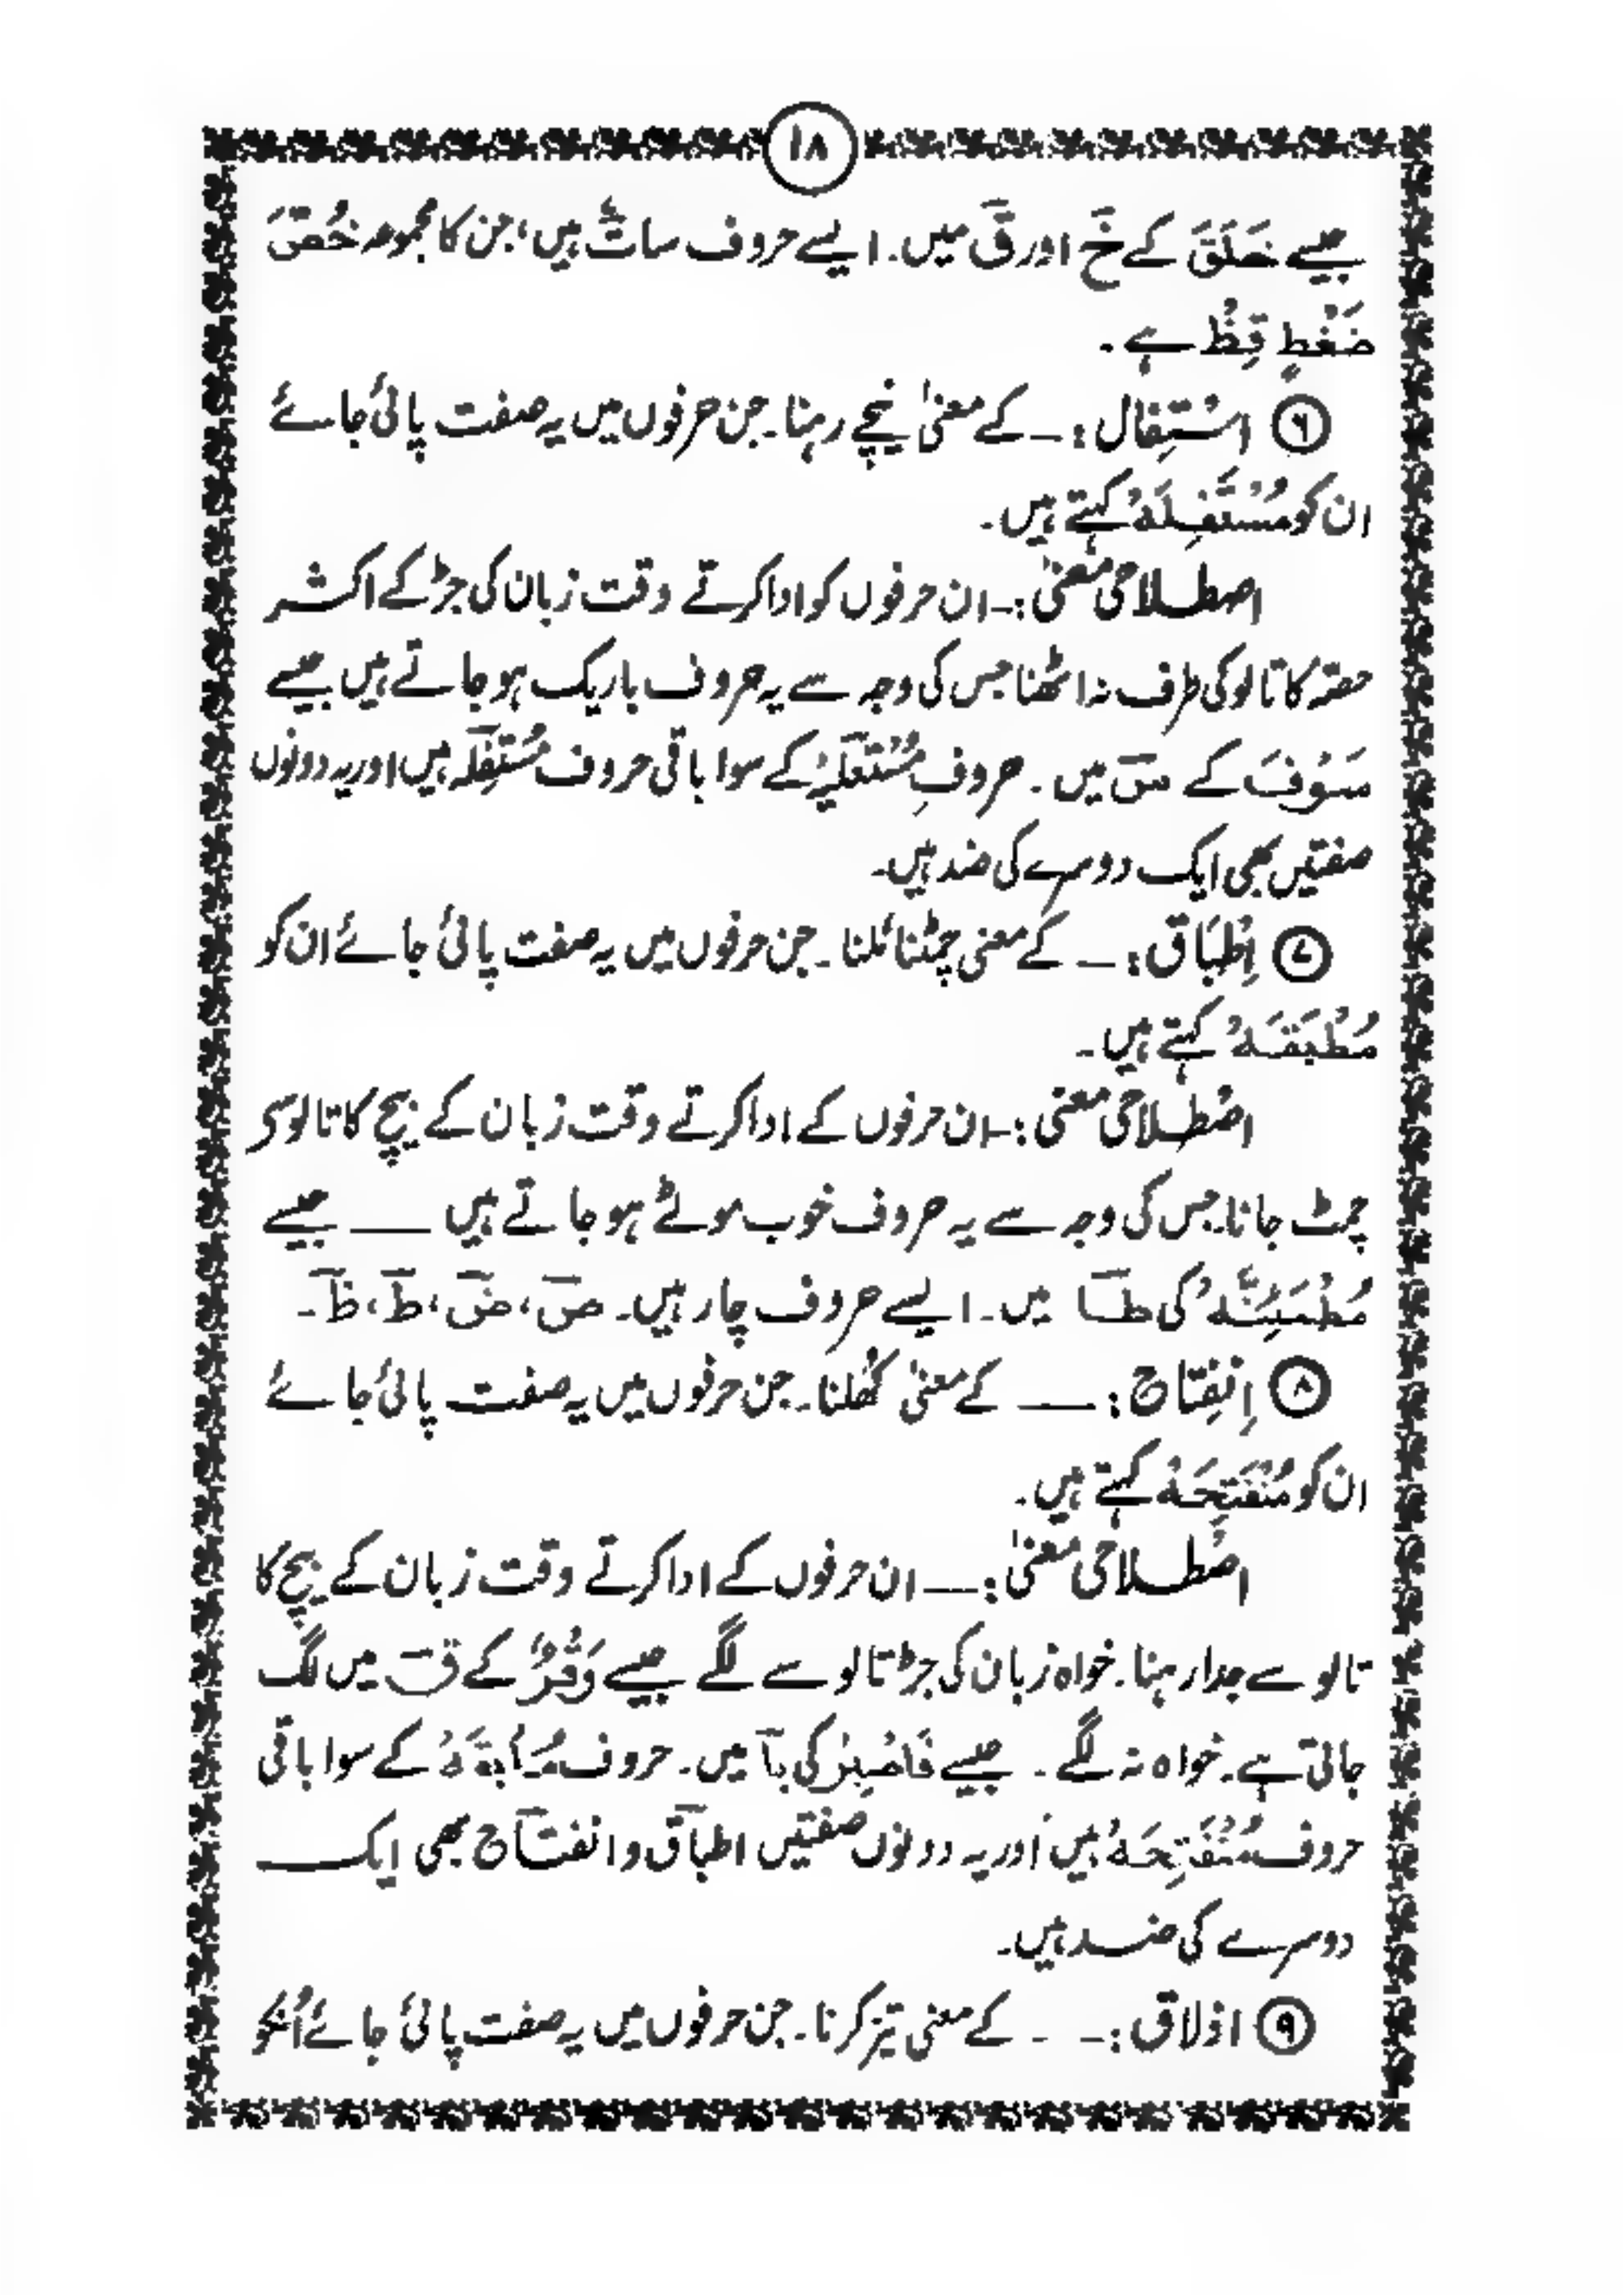 ۱۸
جیسے خَلَقَ کے خَ اور قَ میں۔ ایسے حروف سات ہیں، جن کا مجموعہ خُصَّ
ضَغْطٍ قِظْ ہے۔
۶ اسْتِفَال :۔ کے معنیٰ نیچے رہنا۔ جن حرفوں میں یہ صفت پائی جائے
ان کو مُسْتَفِلَہْ کہتے ہیں۔
اصطلاحی معنیٰ :۔ ان حرفوں کو ادا کرتے وقت زبان کی جڑ کے اکثر
حصّہ کا تالو کی طرف نہ اٹھنا جس کی وجہ سے یہ حروف باریک ہو جاتے ہیں جیسے
سَوْفَ کے س میں۔ حروفِ مُسْتَعْلِیَہْ کے سوا باقی حروف مُسْتَفِلَہ ہیں اور یہ دونوں
صفتیں بھی ایک دوسرے کی ضد ہیں۔
۷ اِطْبَاق :۔ کے معنی چمٹنا، ملنا۔ جن حرفوں میں یہ صفت پائی جائے ان کو
مُطْبَقَہْ کہتے ہیں۔
اصْطِلاحی معنی :۔ ان حرفوں کے ادا کرتے وقت زبان کے بیچ کا تالو سے
چمٹ جانا۔ جس کی وجہ سے یہ حروف خوب موٹے ہو جاتے ہیں ـــ جیسے
مُطْمَئِنَّہْ کی طا میں۔ ایسے حروف چار ہیں۔ ص، ض، ط، ظ۔
۸ اِنْفِتَاح : ـــ کے معنیٰ کُھلنا۔ جن حرفوں میں یہ صفت پائی جائے
ان کو مُنْفَتِحَہْ کہتے ہیں۔
اصْطلاحی معنیٰ :ــ ان حرفوں کے ادا کرتے وقت زبان کے بیچ کا
تالو سے جدا رہنا۔ خواہ زبان کی جڑ تالو سے لگے جیسے وَقْرٌ کے ق میں لگ
جاتی ہے۔ خواہ نہ لگے۔ جیسے کی با میں۔ حروف کے سوا باقی
حروف مُنْفَتِحَہْ ہیں اور یہ دونوں صفتیں اطباق و انفتاح بھی ایک
دوسرے کی ضد ہیں۔
۹ اذلاق :۔ ۔ کے معنی تیز کرنا۔ جن حرفوں میں یہ صفت پائی جائے اُنکو